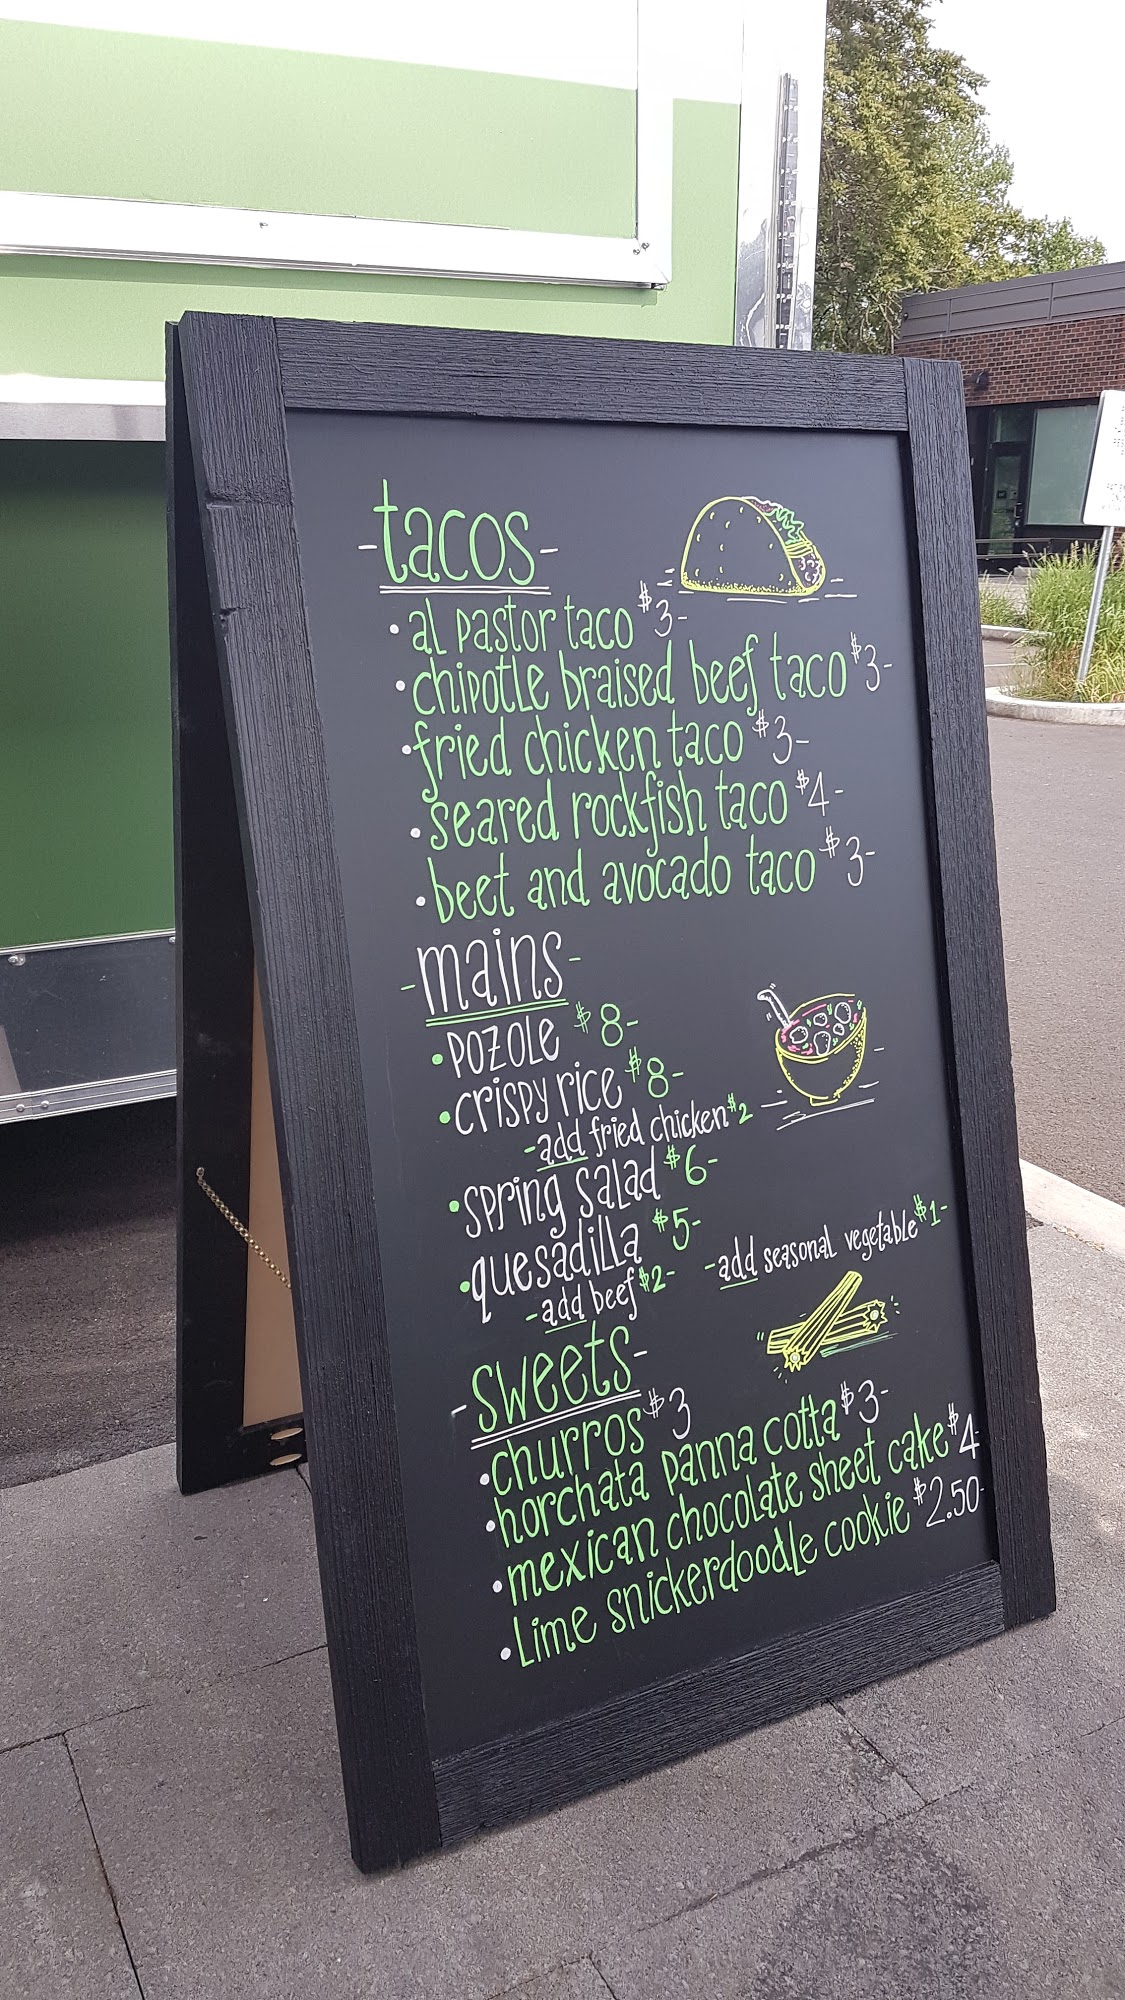 -tacos-
• al pastor taco $3-
• chipotle braised beef taco $3-
• fried chicken taco $3-
• seared rockfish taco $4-
• beet and avocado taco $3-
-mains-
• pozole $8-
• crispy rice $8-
-add fried chicken $2
• spring salad $6-
• quesadilla $5-
-add beef $2- -add seasonal vegetable $1-
-sweets-
• churros $3
• horchata panna cotta $3-
• mexican chocolate sheet cake $4
• lime snickerdoodle cookie $2.50-